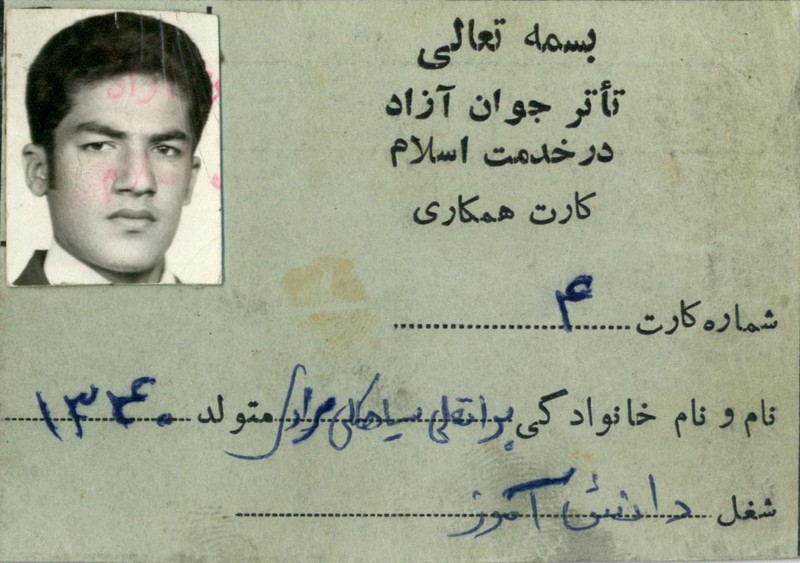 بسمه تعالی
تأتر جوان آزاد
در خدمت اسلام
کارت همکاری
شماره کارت ۴
نام و نام خانوادگی براتعلی سیاهکلی مرادی متولد ۱۳۴۰
شغل دانش آموز